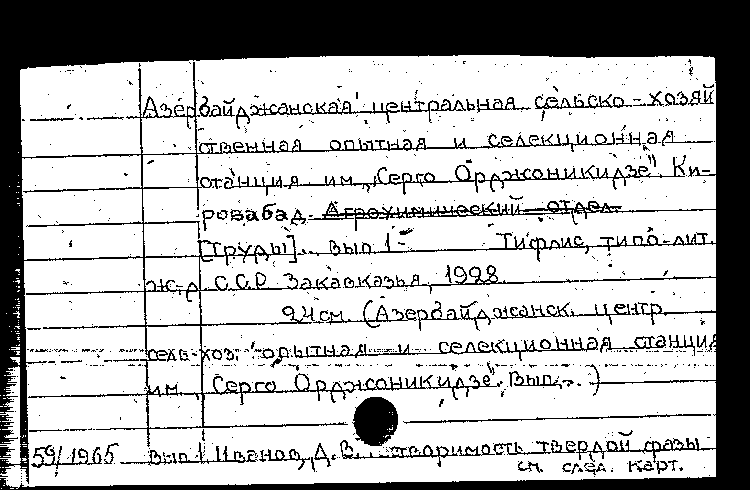 Азербайджанская центральная сельско-хозяй
ственная опытная и селекционная
станция им. „Серго Орджоникидзе". Ки-
ровабад. Агрохимический отдел.
[Труды]... Вып 1- Тифлис, типо-лит.
ж-д ССР Закавказья, 1928.
24 см. (Азербайджанск. центр.
сель-хоз. опытная и селекционная станция
им. Серго Орджоникидзе". Вып...)
59/1965 Вып 1 Иванов, Д. В. створимость твердой фазы
см. след. карт.